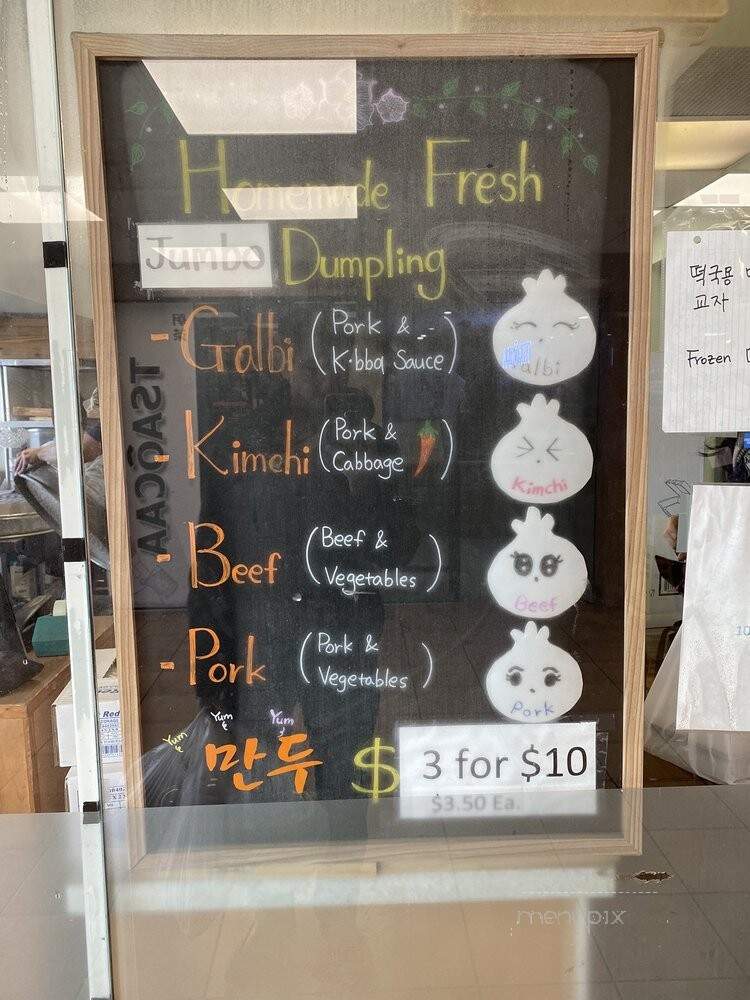 Homemade Fresh
Jumbo Dumpling
- Galbi (Pork &
K·bbq Sauce)
albi
- Kimchi (Pork &
Cabbage)
Kimchi
- Beef (Beef &
Vegetables)
Beef
- Pork (Pork &
Vegetables)
Pork
Yum
&
Yum
&
Yum
만두 $ 3 for $10
$3.50 Ea.
떡국용
교자
Frozen
TSAOCAA
Red
10
menupix